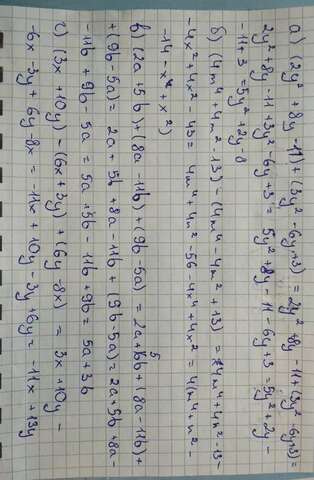 а) (2y² + 8y - 11) + (3y² - 6y + 3) = 2y² + 8y - 11 + (3y² - 6y + 3) =
2y² + 8y - 11 + 3y² - 6y + 3 = 5y² + 8y - 11 - 6y + 3 = 5y² + 2y -
- 11 + 3 = 5y² + 2y - 8
б) (4m⁴ + 4m² - 13) - (4m⁴ - 4m² + 13) = 4m⁴ + 4m² - 13 -
- 4x⁴ + 4x² - 43 = 4m⁴ + 4m² - 56 - 4x⁴ + 4x² = 4(m⁴ + m² -
- 14 - x⁴ + x²)
в) (2a + 5b) + (8a - 11b) + (9b - 5a) = 2a + 5b + (8a - 11b) +
+ (9b - 5a) = 2a + 5b + 8a - 11b + (9b - 5a) = 2a + 5b + 8a -
- 11b + 9b - 5a = 5a + 5b - 11b + 9b = 5a + 3b
г) (3x + 10y) - (6x + 3y) + (6y - 8x) = 3x + 10y -
- 6x - 3y + 6y - 8x = - 11x + 10y - 3y + 6y = - 11x + 13y